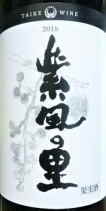 TAIKE WINE
2018
紫風の里
果実酒